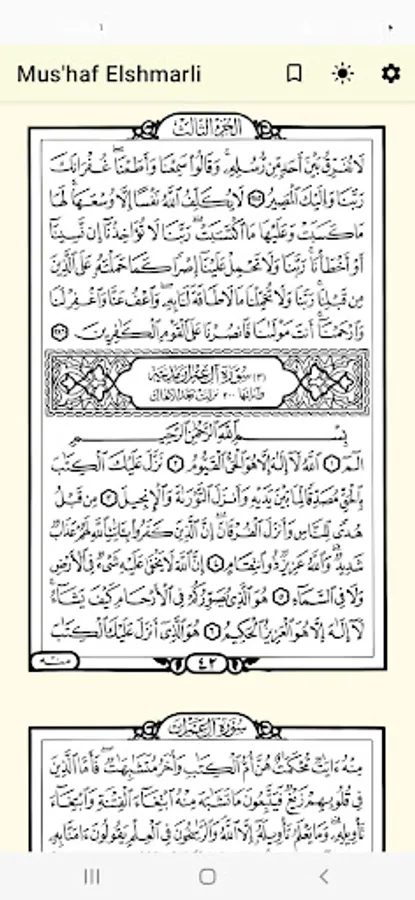 Mus'haf Elshmarli
الجزء الثالث
لَا نُفَرِّقُ بَيْنَ أَحَدٍ مِّن رُّسُلِهِۦ وَقَالُوا۟ سَمِعْنَا وَأَطَعْنَا غُفْرَانَكَ
رَبَّنَا وَإِلَيْكَ ٱلْمَصِيرُ ٢٨٥ لَا يُكَلِّفُ ٱللَّهُ نَفْسًا إِلَّا وُسْعَهَا لَهَا
مَا كَسَبَتْ وَعَلَيْهَا مَا ٱكْتَسَبَتْ رَبَّنَا لَا تُؤَاخِذْنَآ إِن نَّسِينَآ
أَوْ أَخْطَأْنَا رَبَّنَا وَلَا تَحْمِلْ عَلَيْنَآ إِصْرًا كَمَا حَمَلْتَهُۥ عَلَى ٱلَّذِينَ
مِن قَبْلِنَا رَبَّنَا وَلَا تُحَمِّلْنَا مَا لَا طَاقَةَ لَنَا بِهِۦ وَٱعْفُ عَنَّا وَٱغْفِرْ لَنَا
وَٱرْحَمْنَآ أَنتَ مَوْلَىٰنَا فَٱنصُرْنَا عَلَى ٱلْقَوْمِ ٱلْكَٰفِرِينَ ٢٨٦
(٣) سورة آل عمران مدنية
وآياتها ٢٠٠ نزلت بعد الأنفال
بِسْمِ ٱللَّهِ ٱلرَّحْمَٰنِ ٱلرَّحِيمِ
الٓمٓ ١ ٱللَّهُ لَآ إِلَٰهَ إِلَّا هُوَ ٱلْحَىُّ ٱلْقَيُّومُ ٢ نَزَّلَ عَلَيْكَ ٱلْكِتَٰبَ
بِٱلْحَقِّ مُصَدِّقًا لِّمَا بَيْنَ يَدَيْهِ وَأَنزَلَ ٱلتَّوْرَىٰةَ وَٱلْإِنجِيلَ ٣ مِن قَبْلُ
هُدًى لِّلنَّاسِ وَأَنزَلَ ٱلْفُرْقَانَ إِنَّ ٱلَّذِينَ كَفَرُوا۟ بِـَٔايَٰتِ ٱللَّهِ لَهُمْ عَذَابٌ
شَدِيدٌ وَٱللَّهُ عَزِيزٌ ذُو ٱنتِقَامٍ ٤ إِنَّ ٱللَّهَ لَا يَخْفَىٰ عَلَيْهِ شَىْءٌ فِى ٱلْأَرْضِ
وَلَا فِى ٱلسَّمَآءِ ٥ هُوَ ٱلَّذِى يُصَوِّرُكُمْ فِى ٱلْأَرْحَامِ كَيْفَ يَشَآءُ
لَآ إِلَٰهَ إِلَّا هُوَ ٱلْعَزِيزُ ٱلْحَكِيمُ ٦ هُوَ ٱلَّذِىٓ أَنزَلَ عَلَيْكَ ٱلْكِتَٰبَ
منه
٤٢
سورة آل عمران
مِنْهُ ءَايَٰتٌ مُّحْكَمَٰتٌ هُنَّ أُمُّ ٱلْكِتَٰبِ وَأُخَرُ مُتَشَٰبِهَٰتٌ فَأَمَّا ٱلَّذِينَ
فِى قُلُوبِهِمْ زَيْغٌ فَيَتَّبِعُونَ مَا تَشَٰبَهَ مِنْهُ ٱبْتِغَآءَ ٱلْفِتْنَةِ وَٱبْتِغَآءَ
تَأْوِيلِهِۦ وَمَا يَعْلَمُ تَأْوِيلَهُۥٓ إِلَّا ٱللَّهُ وَٱلرَّٰسِخُونَ فِى ٱلْعِلْمِ يَقُولُونَ ءَامَنَّا بِهِۦ